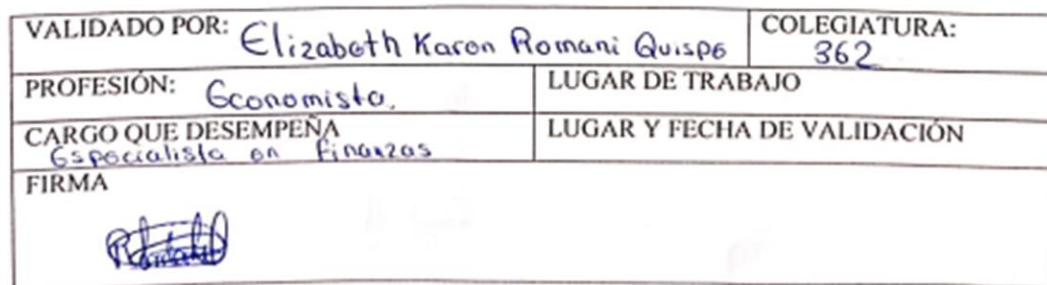 VALIDADO POR: Elizabeth Karen Romani Quispe
COLEGIATURA: 362
PROFESIÓN: Economista.
LUGAR DE TRABAJO
CARGO QUE DESEMPEÑA
Especialista en finanzas
LUGAR Y FECHA DE VALIDACIÓN
FIRMA